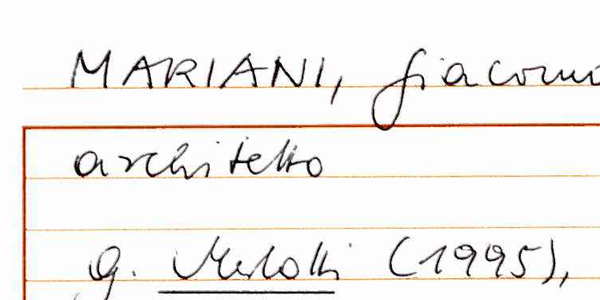 MARIANI, Giacomo
architetto
G. Merlotti (1995),